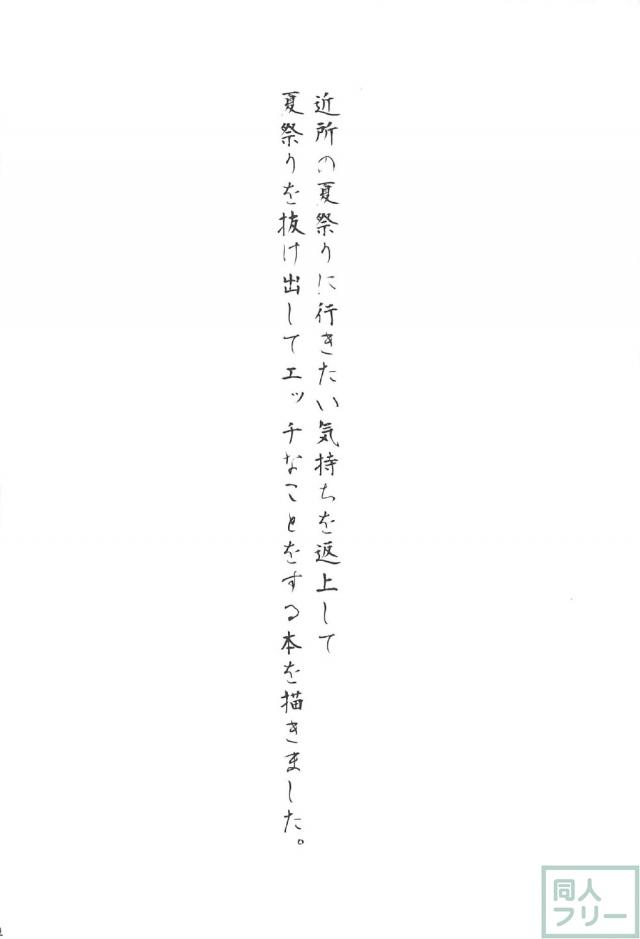 近所の夏祭りに行きたい気持ちを返上して
夏祭りを抜け出してエッチなことをする本を描きました。
同人
フリー